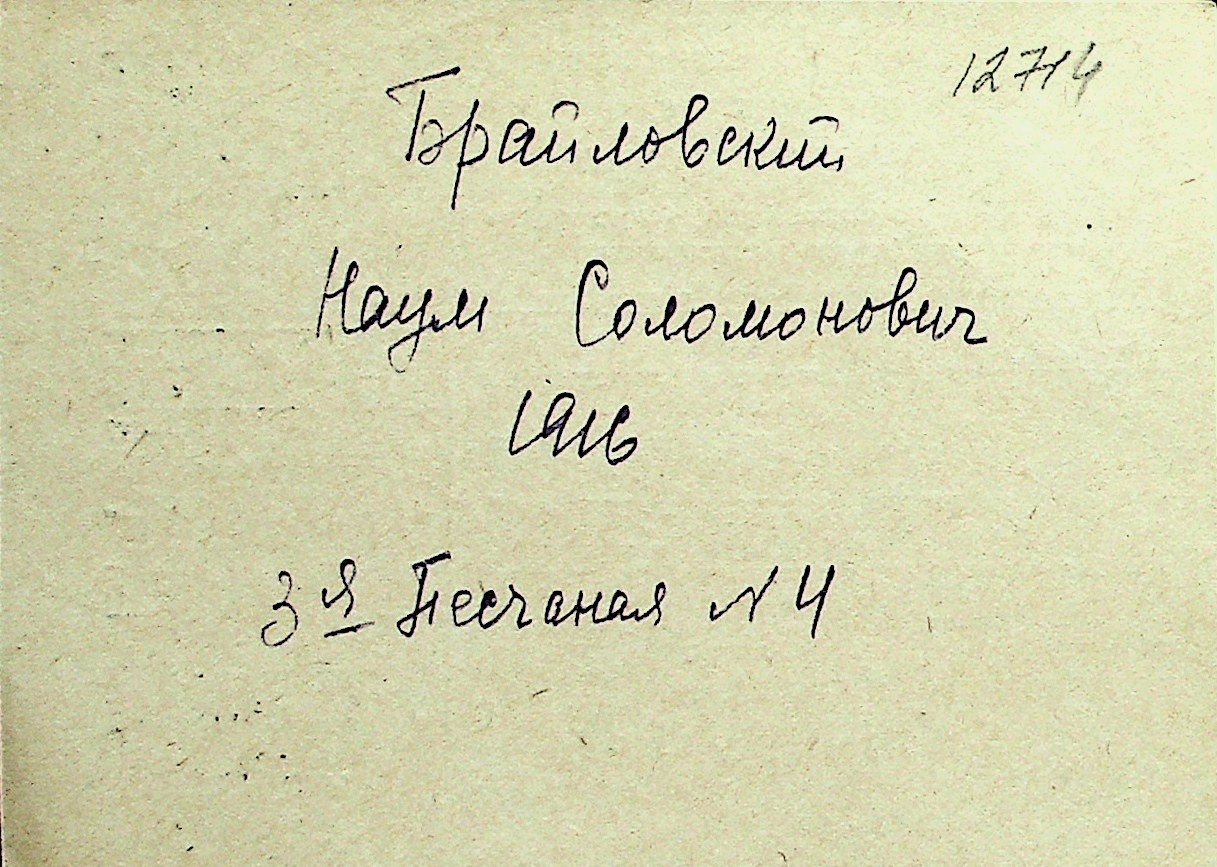 12714
Брайловский
Наум Соломонович
1916
3я Песчаная N 4